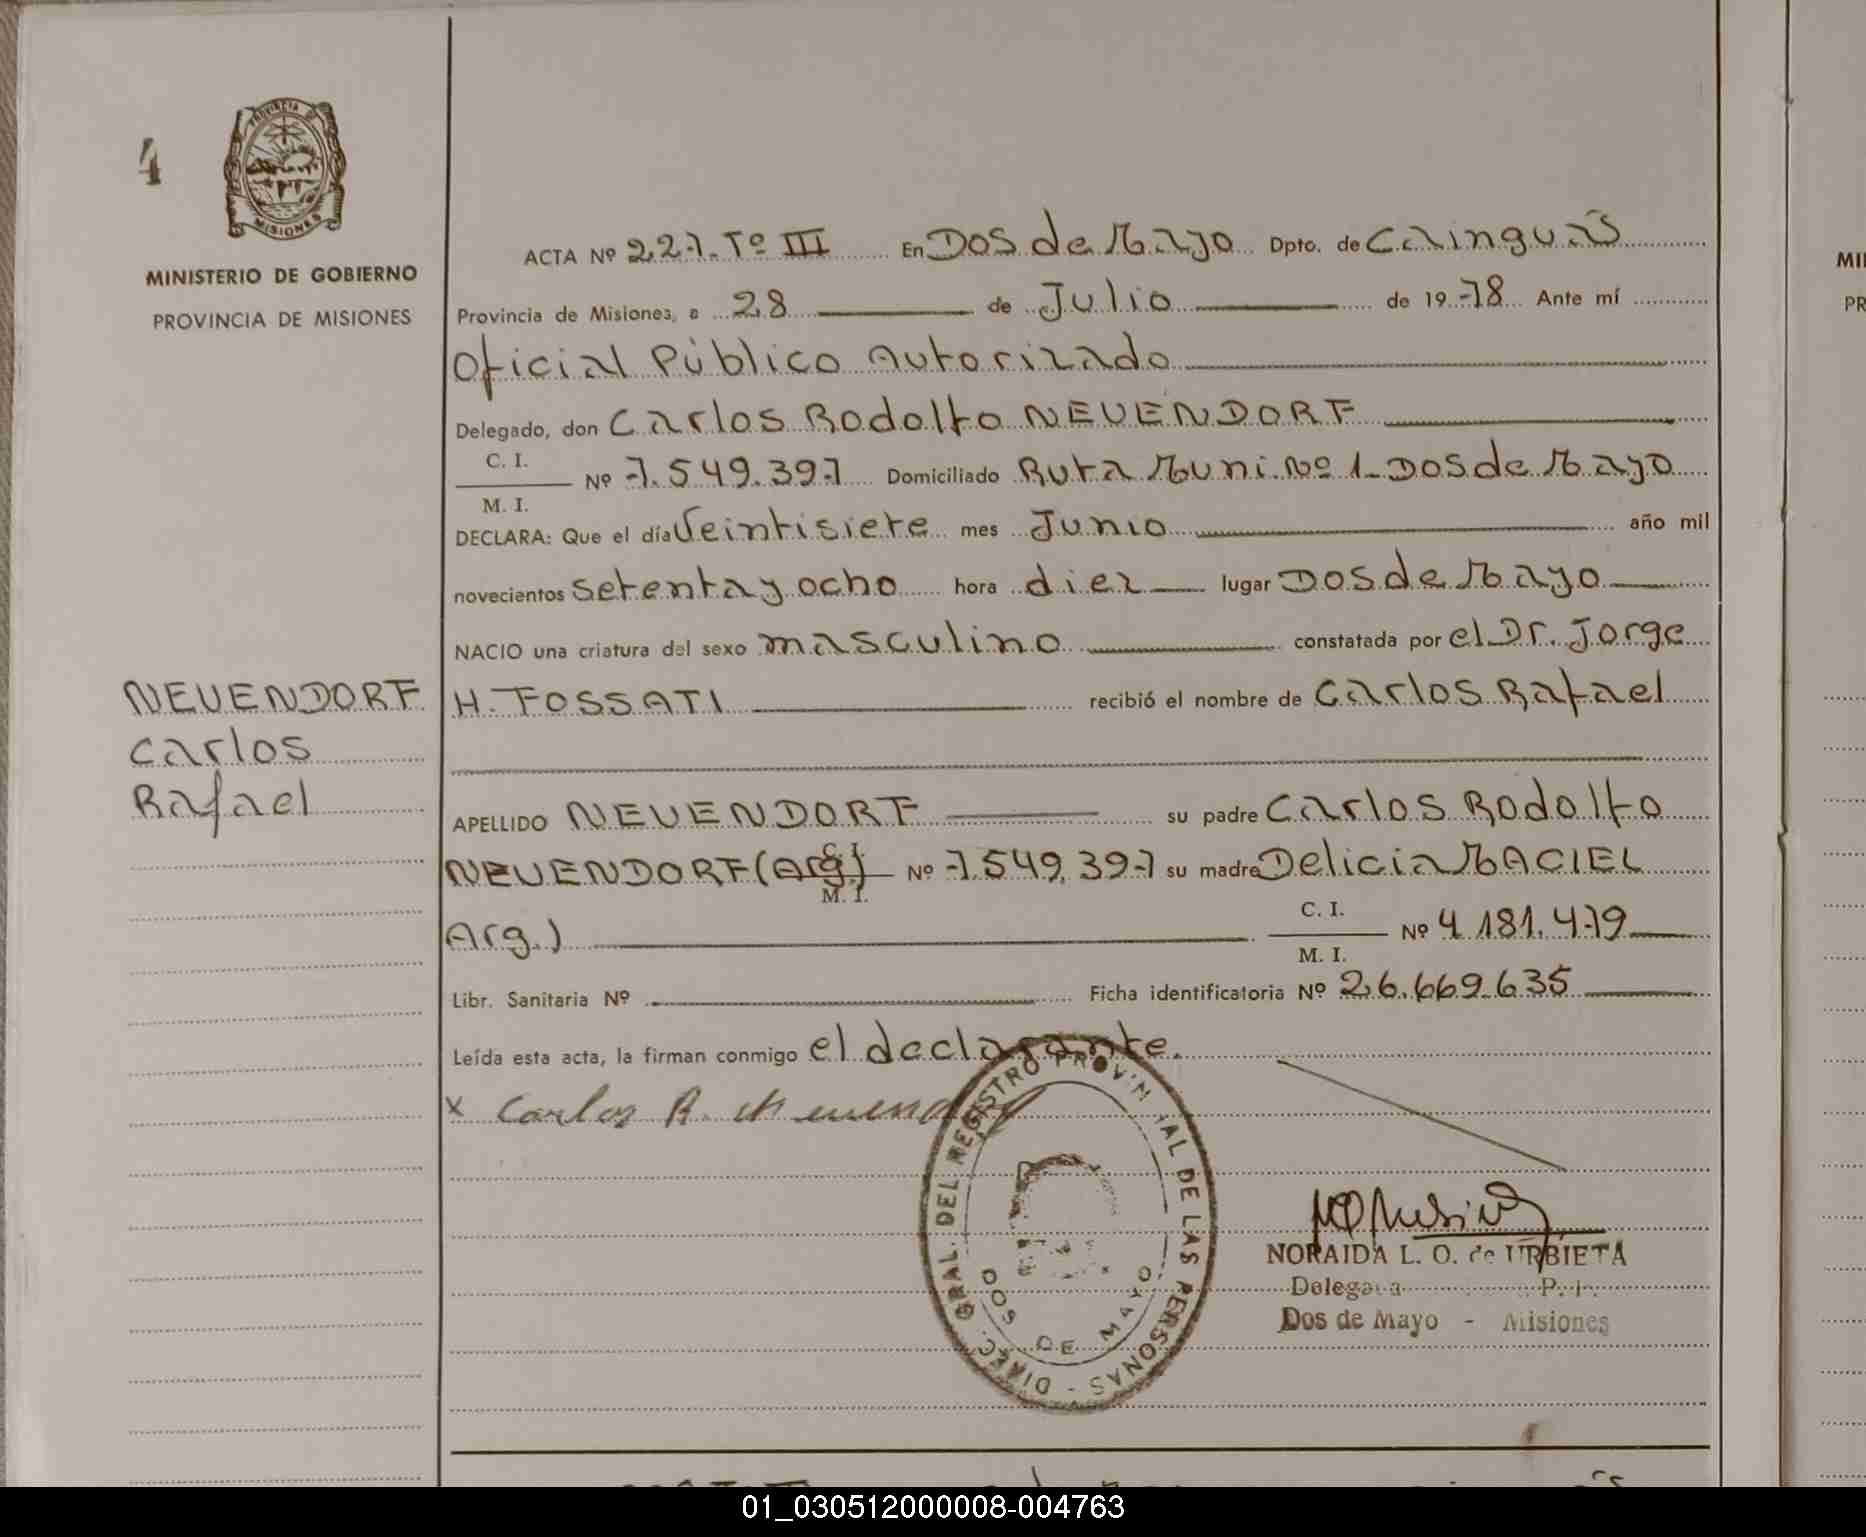 4
PROVINCIA DE
MISIONES
MINISTERIO DE GOBIERNO
PROVINCIA DE MISIONES
NEUENDORF
Carlos
Rafael
ACTA Nº 227. Tº III En Dos de Mayo Dpto. de Cainguás
Provincia de Misiones, a 28 de Julio de 1978 Ante mí
Oficial Público Autorizado
Delegado, don Carlos Rodolfo NEUENDORF
C. I.
M. I.
Nº 7.549.397 Domiciliado Ruta Muni. Nº 1 - Dos de Mayo
DECLARA: Que el día Veintisiete mes Junio año mil
novecientos setenta y ocho hora diez lugar Dos de Mayo
NACIO una criatura del sexo masculino constatada por el Dr. Jorge
H. FOSSATI recibió el nombre de Carlos Rafael
APELLIDO NEUENDORF su padre Carlos Rodolfo
NEUENDORF (Arg.) C. I. M. I. Nº 7.549.397 su madre Delicia MACIEL
Arg.) C. I.
M. I.
Nº 4.181.479
Libr. Sanitaria Nº Ficha identificatoria Nº 26.669.635
Leída esta acta, la firman conmigo el declarante.
x Carlos R. Neuendorf
DIREC. GRAL. DEL REGISTRO PROVINCIAL DE LAS PERSONAS -
DOS DE MAYO
NORAIDA L. O. de URBIETA
Delegada
Dos de Mayo - Misiones
01_030512000008-004763